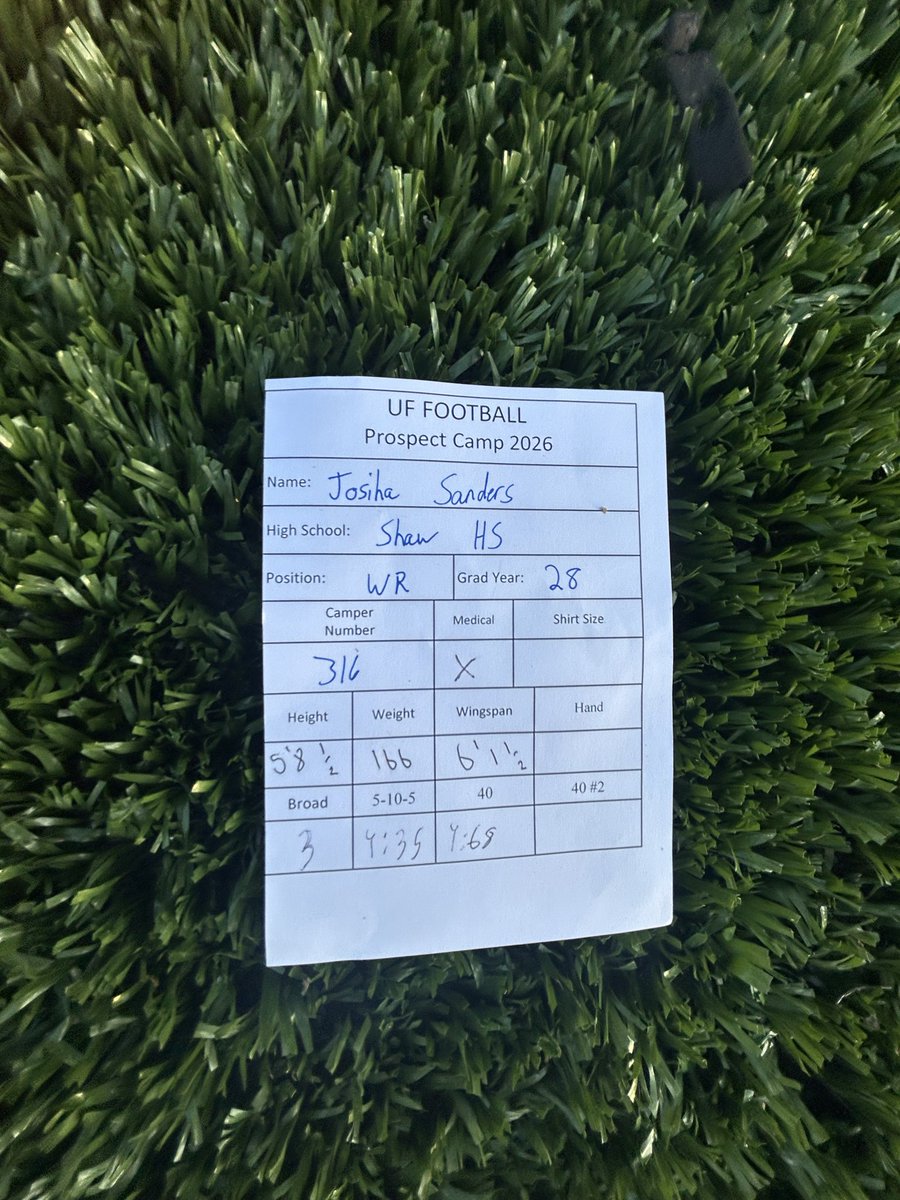 UF FOOTBALL
Prospect Camp 2026
Name: Josiha Sanders
High School: Shaw HS
Position: WR Grad Year: 28
Camper Number Medical Shirt Size
316 X
Height Weight Wingspan Hand
5'8 1/2 166 6'1 1/2
Broad 5-10-5 40 40 #2
3 4:35 4:68